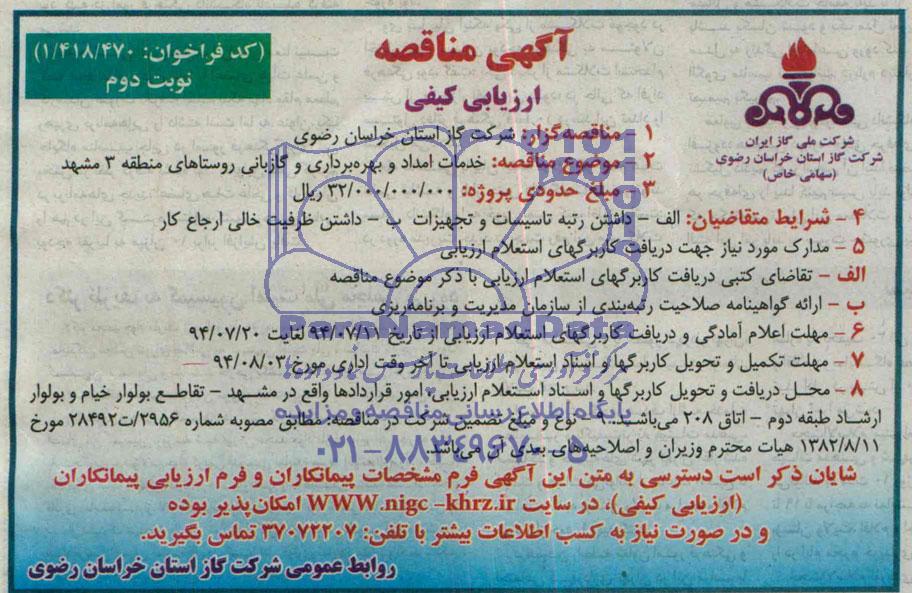 آگهی مناقصه
ارزیابی کیفی
(کد فراخوان: ۱/۴۱۸/۴۷۰)
نوبت دوم
شرکت ملی گاز ایران
شرکت گاز استان خراسان رضوی
(سهامی خاص)
۱ - مناقصه‌گزار: شرکت گاز استان خراسان رضوی
۲ - موضوع مناقصه: خدمات امداد و بهره‌برداری و گازبانی روستاهای منطقه ۳ مشهد
۳ - مبلغ حدودی پروژه: ۳۲/۰۰۰/۰۰۰/۰۰۰ ریال
۴ - شرایط متقاضیان: الف - داشتن رتبه تاسیسات و تجهیزات ب - داشتن ظرفیت خالی ارجاع کار
۵ - مدارک مورد نیاز جهت دریافت کاربرگهای استعلام ارزیابی
الف - تقاضای کتبی دریافت کاربرگهای استعلام ارزیابی با ذکر موضوع مناقصه
ب - ارائه گواهینامه صلاحیت رتبه‌بندی از سازمان مدیریت و برنامه‌ریزی
۶ - مهلت اعلام آمادگی و دریافت کاربرگهای استعلام ارزیابی از تاریخ ۹۴/۰۷/۱۱ لغایت ۹۴/۰۷/۲۰
۷ - مهلت تکمیل و تحویل کاربرگها و اسناد استعلام ارزیابی تا آخر وقت اداری مورخ ۹۴/۰۸/۰۳
۸ - محل دریافت و تحویل کاربرگها و اسناد استعلام ارزیابی: امور قراردادها واقع در مشهد - تقاطع بولوار خیام و بولوار
ارشاد طبقه دوم - اتاق ۲۰۸ می‌باشد. ۹ - نوع و مبلغ تضمین شرکت در مناقصه: مطابق مصوبه شماره ۲۹۵۶/ت۲۸۴۹۲ مورخ
۱۳۸۲/۸/۱۱ هیات محترم وزیران و اصلاحیه‌های بعدی آن می‌باشد.
شایان ذکر است دسترسی به متن این آگهی فرم مشخصات پیمانکاران و فرم ارزیابی پیمانکاران
(ارزیابی کیفی)، در سایت WWW.nigc-khrz.ir امکان‌پذیر بوده
و در صورت نیاز به کسب اطلاعات بیشتر با تلفن: ۳۷۰۷۲۲۰۷ تماس بگیرید.
روابط عمومی شرکت گاز استان خراسان رضوی
ParsNamadData
پایگاه اطلاع رسانی مناقصه و مزایده
۰۲۱-۸۸۳۴۹۶۷۰-۵